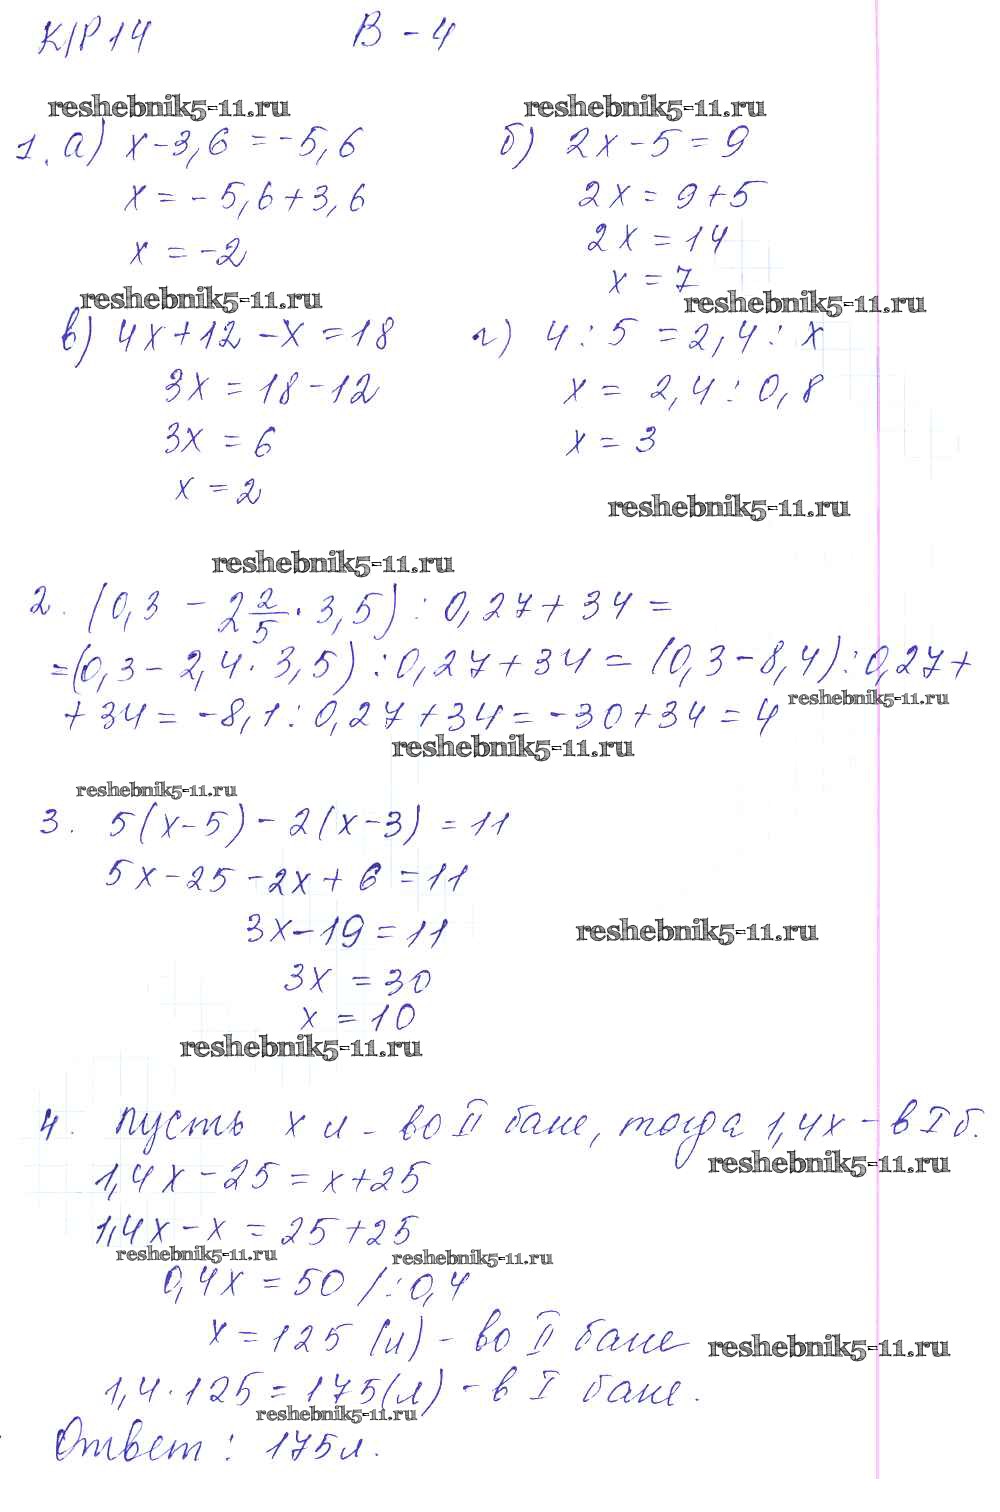 К/Р 14 В - 4
reshebnik5-11.ru reshebnik5-11.ru
1. а) x - 3,6 = -5,6 б) 2x - 5 = 9
x = -5,6 + 3,6 2x = 9 + 5
x = -2 2x = 14
x = 7
reshebnik5-11.ru reshebnik5-11.ru
в) 4x + 12 - x = 18 г) 4 : 5 = 2,4 : x
3x = 18 - 12 x = 2,4 : 0,8
3x = 6 x = 3
x = 2
reshebnik5-11.ru
reshebnik5-11.ru
2. (0,3 - 2 2/5 · 3,5) : 0,27 + 34 =
= (0,3 - 2,4 · 3,5) : 0,27 + 34 = (0,3 - 8,4) : 0,27 +
reshebnik5-11.ru
+ 34 = -8,1 : 0,27 + 34 = -30 + 34 = 4
reshebnik5-11.ru
reshebnik5-11.ru
3. 5(x - 5) - 2(x - 3) = 11
5x - 25 - 2x + 6 = 11
3x - 19 = 11
reshebnik5-11.ru
3x = 30
x = 10
reshebnik5-11.ru
4. Пусть x л - во II баке, тогда 1,4x - в I б.
reshebnik5-11.ru
1,4x - 25 = x + 25
1,4x - x = 25 + 25
reshebnik5-11.ru reshebnik5-11.ru
0,4x = 50 /: 0,4
x = 125 (л) - во II баке
reshebnik5-11.ru
1,4 · 125 = 175 (л) - в I баке.
reshebnik5-11.ru
Ответ: 175 л.